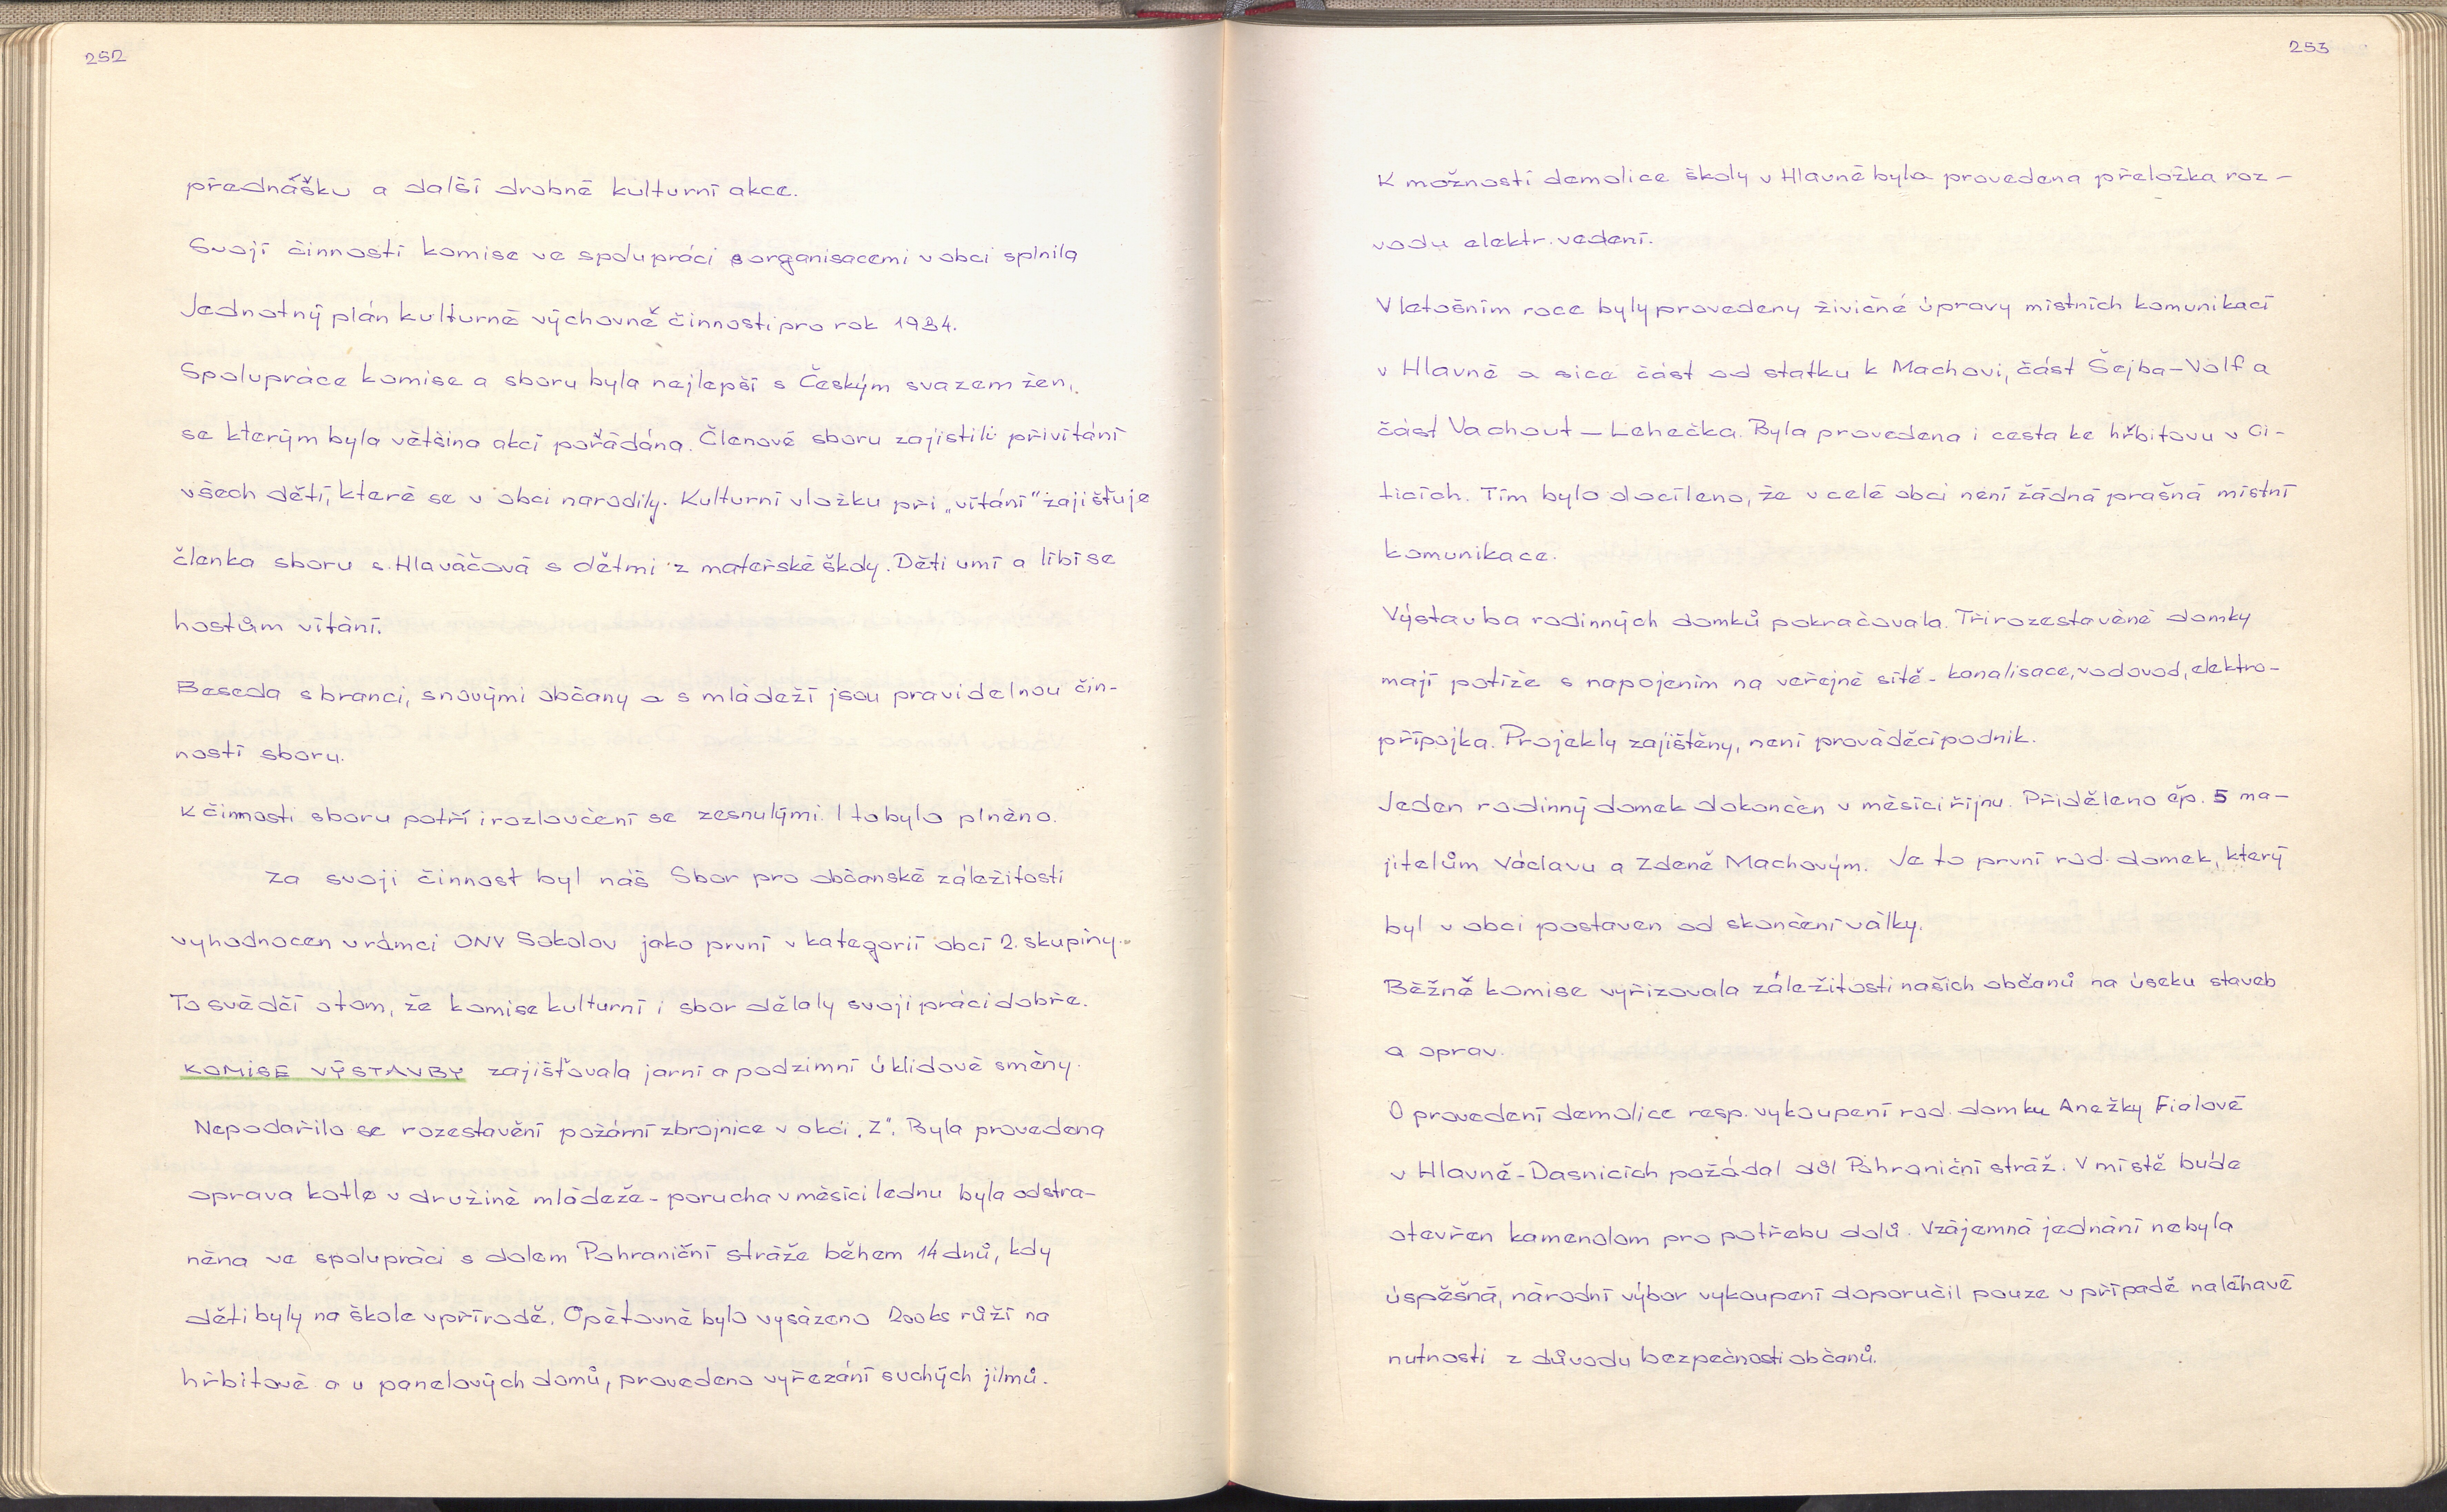 252
přednášku a další drobné kulturní akce.
Svojí činností komise ve spolupráci s organisacemi v obci splnila
Jednotný plán kulturně výchovné činnosti pro rok 1984.
Spolupráce komise a sboru byla nejlepší s Českým svazem žen,
se kterým byla většina akcí pořádána. Členové sboru zajistili přivítání
všech dětí, které se v obci narodily. Kulturní vložku při „vítání" zajišťuje
členka sboru s. Hlaváčová s dětmi z mateřské školy. Děti umí a líbí se
hostům vítání.
Beseda s branci, s novými občany a s mládeží jsou pravidelnou čin-
ností sboru.
K činnosti sboru potří i rozloučení se zesnulými. I to bylo plněno.
Za svoji činnost byl náš Sbor pro občanské záležitosti
vyhodnocen v rámci ONV Sokolov jako první v kategorii obcí 2. skupiny.
To svědčí o tom, že komise kulturní i sbor dělaly svoji práci dobře.
KOMISE VÝSTAVBY zajišťovala jarní a podzimní úklidové směny.
Nepodařilo se rozestavění požární zbrojnice v akci „Z". Byla provedena
oprava kotle v družině mládeže - porucha v měsíci lednu byla odstra-
něna ve spolupráci s dolem Pohraniční stráže během 14 dnů, kdy
děti byly na škole v přírodě. Opětovně bylo vysázeno 200 ks růží na
hřbitově a u panelových domů, provedeno vyřezání suchých jilmů.
253
K možnosti demolice školy v Hlavně byla provedena přeložka roz-
vodu elektr. vedení.
V letošním roce byly provedeny živičné úpravy místních komunikací
v Hlavně a sice část od statku k Machovi, část Šejba - Volf a
část Vachout - Lehečka. Byla provedena i cesta ke hřbitovu v Ci-
ticích. Tím bylo docíleno, že v celé obci není žádná prašná místní
komunikace.
Výstavba rodinných domků pokračovala. Tři rozestavěné domky
mají potíže s napojením na veřejné sítě - kanalisace, vodovod, elektro-
přípojka. Projekty zajištěny, není prováděcí podnik.
Jeden rodinný domek dokončen v měsíci říjnu. Přiděleno čp. 5 ma-
jitelům Václavu a Zdeně Machovým. Je to první rod. domek, který
byl v obci postaven od skončení války.
Běžně komise vyřizovala záležitosti našich občanů na úseku staveb
a oprav.
O provedení demolice resp. vykoupení rod. domku Anežky Fialové
v Hlavně - Dasnicích požádal důl Pohraniční stráž. V místě bude
otevřen kamenolom pro potřebu dolů. Vzájemná jednání nebyla
úspěšná, národní výbor vykoupení doporučil pouze v případě naléhavé
nutnosti z důvodu bezpečnosti občanů.